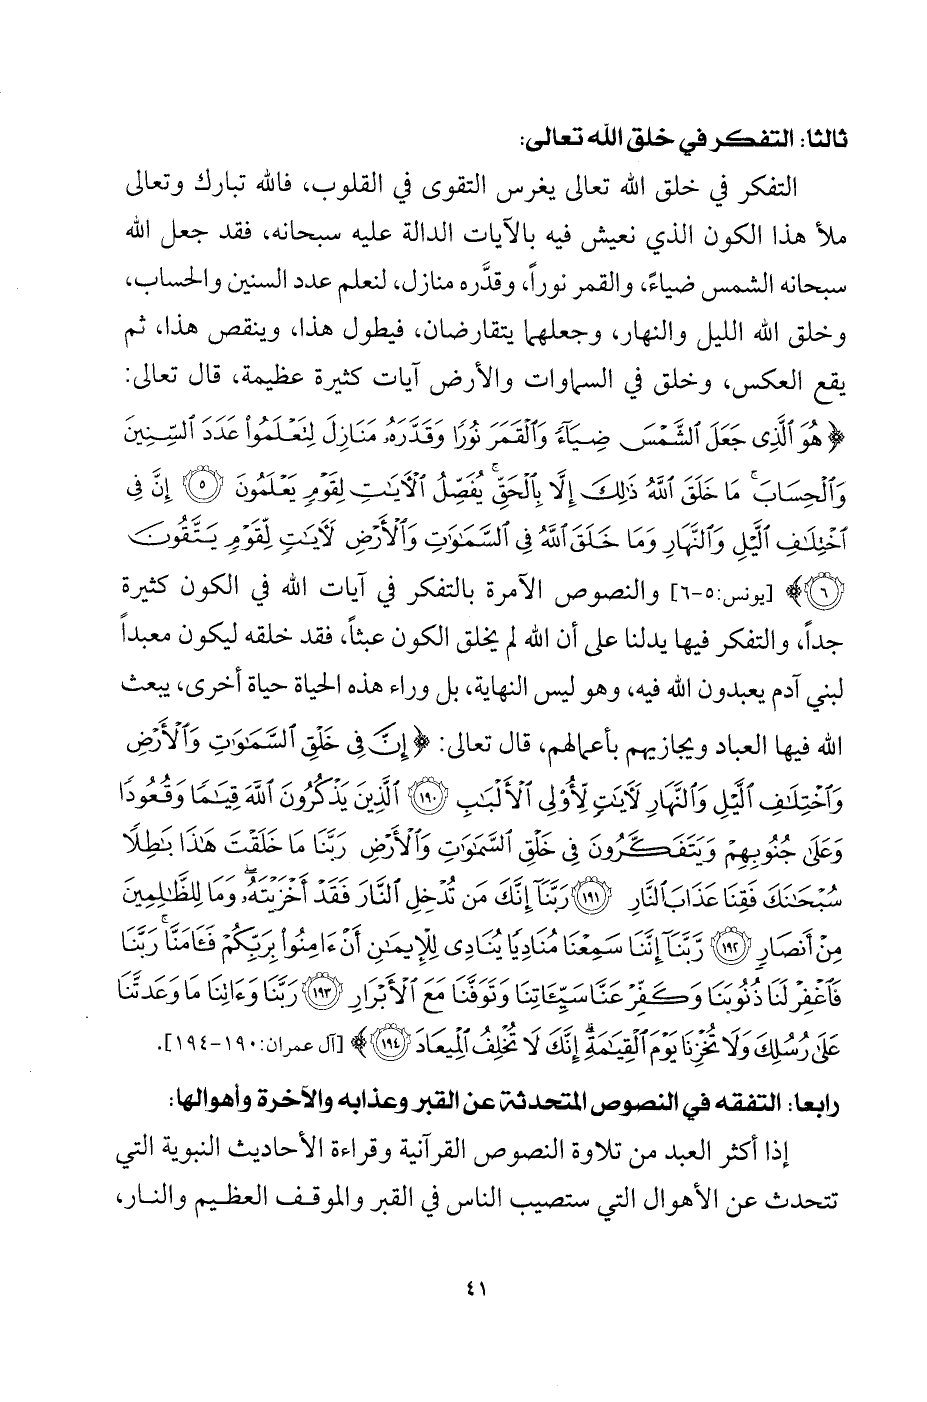 ثالثا: التفكر في خلق الله تعالى:
التفكر في خلق الله تعالى يغرس التقوى في القلوب، فالله تبارك وتعالى
ملأ هذا الكون الذي نعيش فيه بالآيات الدالة عليه سبحانه، فقد جعل الله
سبحانه الشمس ضياءً، والقمر نوراً، وقدَّره منازل، لنعلم عدد السنين والحساب،
وخلق الله الليل والنهار، وجعلهما يتقارضان، فيطول هذا، وينقص هذا، ثم
يقع العكس، وخلق في السماوات والأرض آيات كثيرة عظيمة، قال تعالى:
﴿هُوَ ٱلَّذِى جَعَلَ ٱلشَّمْسَ ضِيَآءً وَٱلْقَمَرَ نُورًا وَقَدَّرَهُۥ مَنَازِلَ لِتَعْلَمُوا۟ عَدَدَ ٱلسِّنِينَ
وَٱلْحِسَابَ ۚ مَا خَلَقَ ٱللَّهُ ذَٰلِكَ إِلَّا بِٱلْحَقِّ ۚ يُفَصِّلُ ٱلْآيَٰتِ لِقَوْمٍ يَعْلَمُونَ ٥ إِنَّ فِى
ٱخْتِلَٰفِ ٱلَّيْلِ وَٱلنَّهَارِ وَمَا خَلَقَ ٱللَّهُ فِى ٱلسَّمَٰوَٰتِ وَٱلْأَرْضِ لَآيَٰتٍ لِّقَوْمٍ يَتَّقُونَ
٦﴾ [يونس:٥-٦] والنصوص الآمرة بالتفكر في آيات الله في الكون كثيرة
جداً، والتفكر فيها يدلنا على أن الله لم يخلق الكون عبثاً، فقد خلقه ليكون معبداً
لبني آدم يعبدون الله فيه، وهو ليس النهاية، بل وراء هذه الحياة حياة أخرى، يبعث
الله فيها العباد ويجازيهم بأعمالهم، قال تعالى: ﴿إِنَّ فِى خَلْقِ ٱلسَّمَٰوَٰتِ وَٱلْأَرْضِ
وَٱخْتِلَٰفِ ٱلَّيْلِ وَٱلنَّهَارِ لَآيَٰتٍ لِّأُو۟لِى ٱلْأَلْبَٰبِ ١٩٠ ٱلَّذِينَ يَذْكُرُونَ ٱللَّهَ قِيَٰمًا وَقُعُودًا
وَعَلَىٰ جُنُوبِهِمْ وَيَتَفَكَّرُونَ فِى خَلْقِ ٱلسَّمَٰوَٰتِ وَٱلْأَرْضِ رَبَّنَا مَا خَلَقْتَ هَٰذَا بَٰطِلًا
سُبْحَٰنَكَ فَقِنَا عَذَابَ ٱلنَّارِ ١٩١ رَبَّنَآ إِنَّكَ مَن تُدْخِلِ ٱلنَّارَ فَقَدْ أَخْزَيْتَهُۥ ۖ وَمَا لِلظَّٰلِمِينَ
مِنْ أَنصَارٍ ١٩٢ رَّبَّنَآ إِنَّنَا سَمِعْنَا مُنَادِيًا يُنَادِى لِلْإِيمَٰنِ أَنْ ءَامِنُوا۟ بِرَبِّكُمْ فَـَٔامَنَّا ۚ رَبَّنَا
فَٱغْفِرْ لَنَا ذُنُوبَنَا وَكَفِّرْ عَنَّا سَيِّـَٔاتِنَا وَتَوَفَّنَا مَعَ ٱلْأَبْرَارِ ١٩٣ رَبَّنَا وَءَاتِنَا مَا وَعَدتَّنَا
عَلَىٰ رُسُلِكَ وَلَا تُخْزِنَا يَوْمَ ٱلْقِيَٰمَةِ ۗ إِنَّكَ لَا تُخْلِفُ ٱلْمِيعَادَ ١٩٤﴾ [آل عمران:١٩٠-١٩٤].
رابعا: التفقه في النصوص المتحدثة عن القبر وعذابه والآخرة وأهوالها:
إذا أكثر العبد من تلاوة النصوص القرآنية وقراءة الأحاديث النبوية التي
تتحدث عن الأهوال التي ستصيب الناس في القبر والموقف العظيم والنار،
٤١